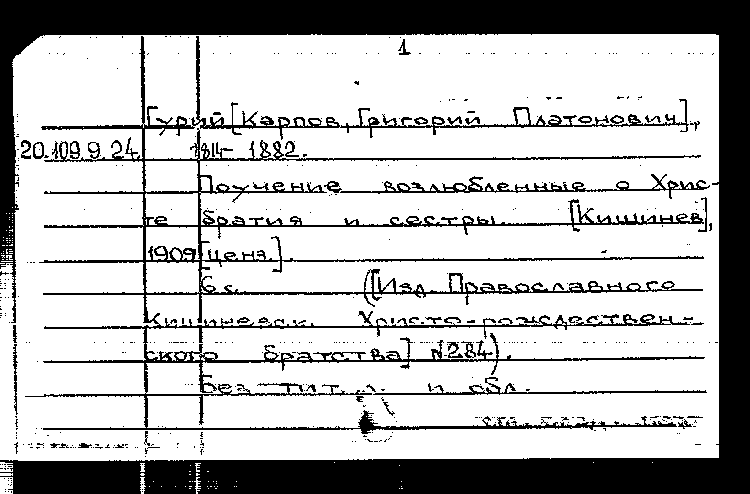 1
Гурий [Карпов, Григорий Платонович],
20.109.9.24 1814-1882.
Поучение возлюбленные о Хрис-
те братия и сестры. [Кишинев],
1909 [ценз.].
6 с. ([Изд. Православного
Кишиневск. Христо-рождествен-
ского братства] №284).
Без тит. л. и обл.